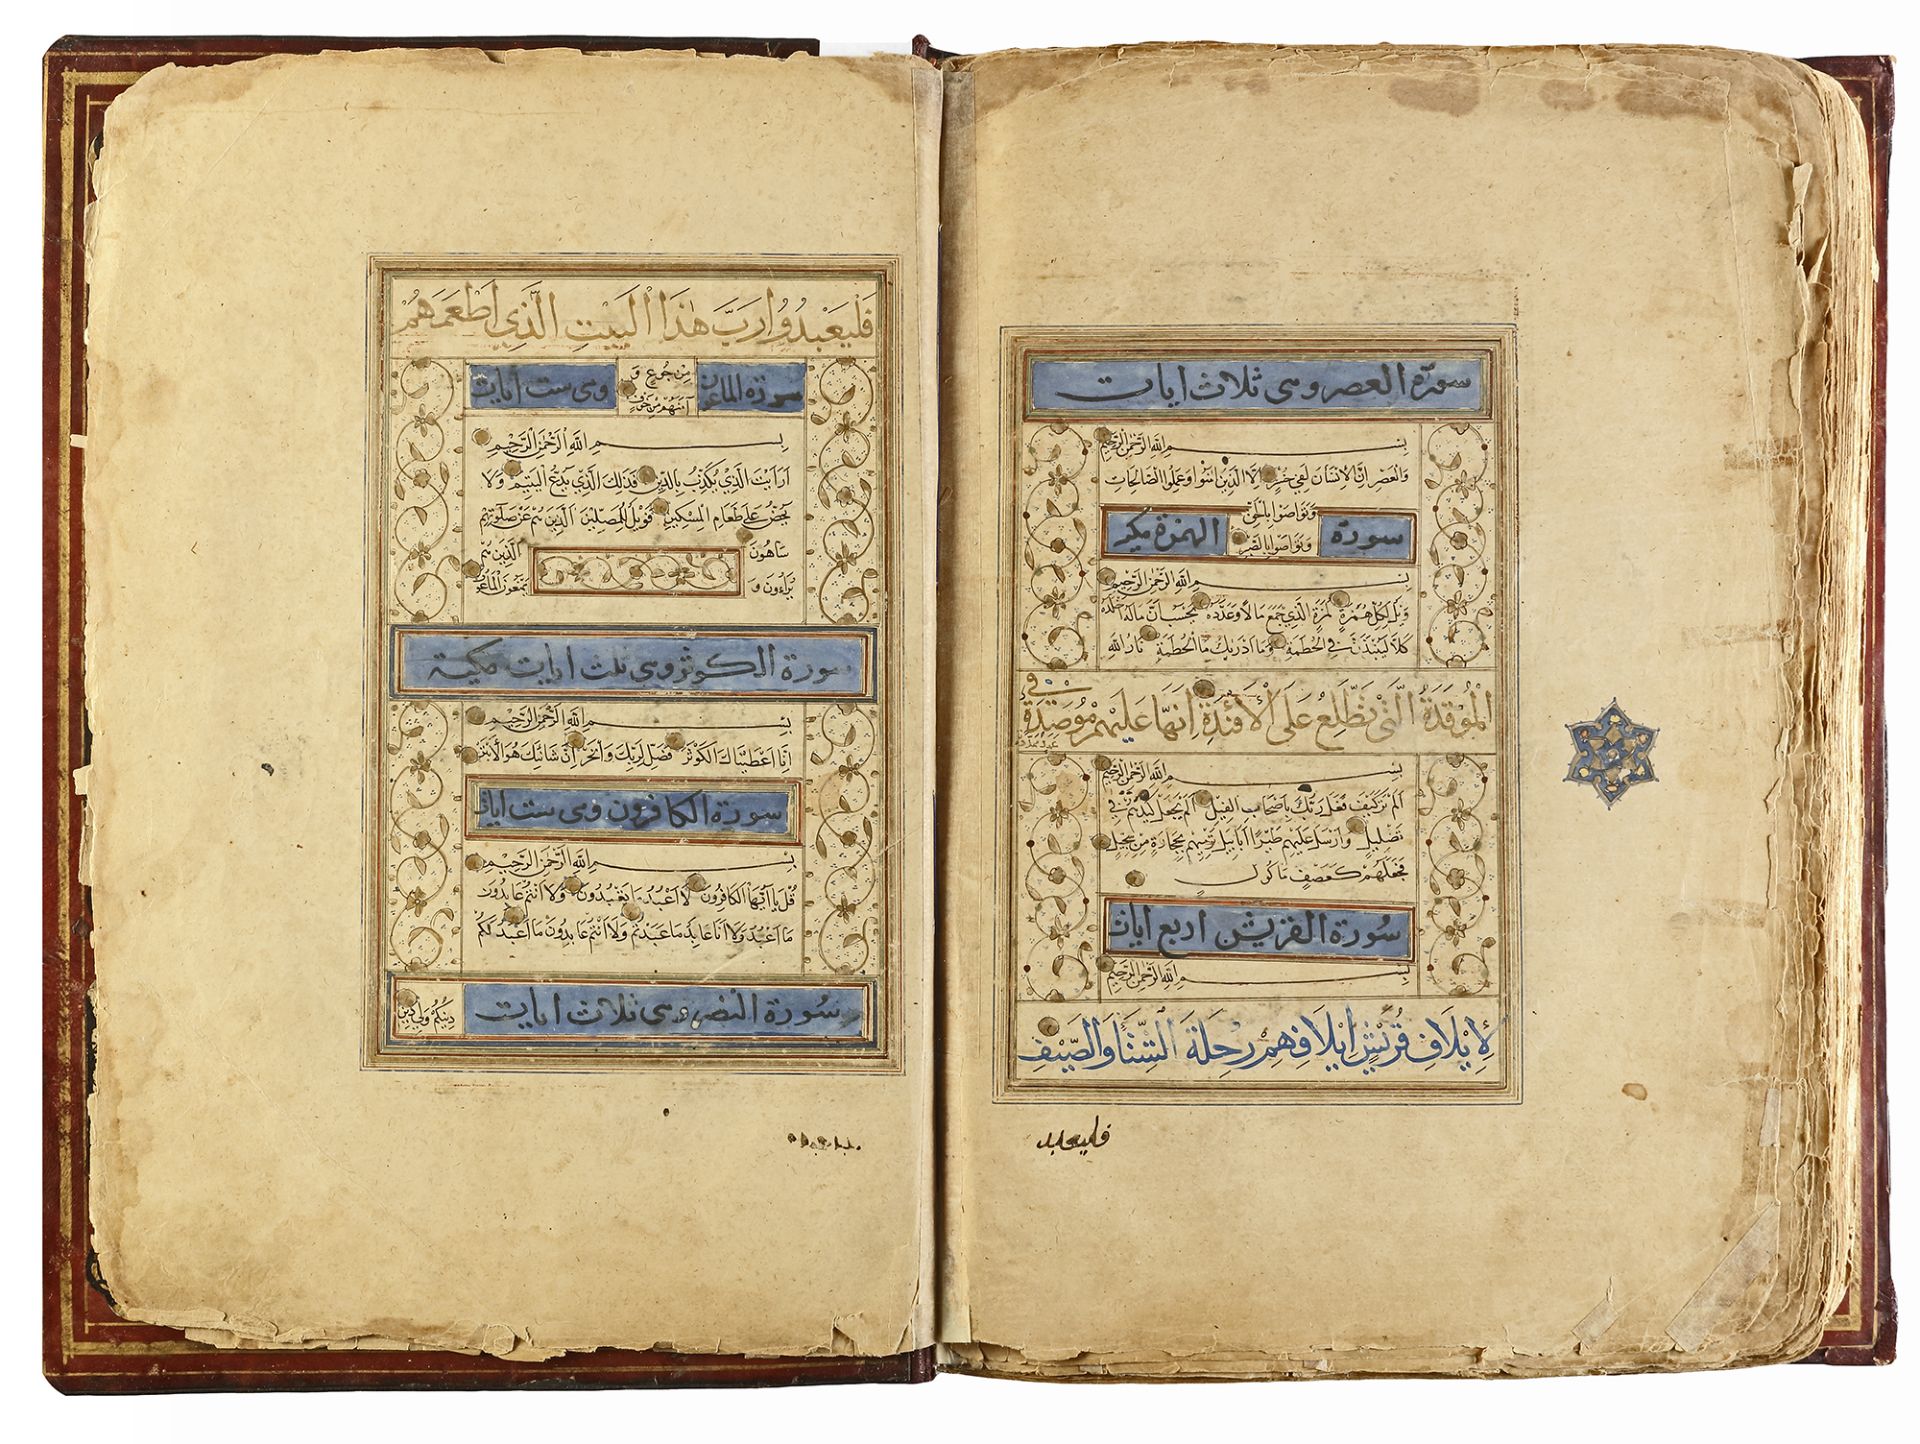 سورة العصر وهى ثلاث ايات
بِسْمِ اللَّهِ الرَّحْمَنِ الرَّحِيمِ
وَالعَصرِ اِنَّ الاِنْسَانَ لَفِي خُسْرٍ اِلَّا الَّذِينَ اٰمَنُوا وَعَمِلُوا الصَّالِحَاتِ
وَتَوَاصَوْا بِالحَقِّ
وَتَوَاصَوْا بِالصَّبْرِ
سورة الهمزة
بِسْمِ اللَّهِ الرَّحْمَنِ الرَّحِيمِ
وَيْلٌ لِكُلِّ هُمَزَةٍ لُمَزَةٍ الَّذِي جَمَعَ مَالًا وَعَدَّدَهُ يَحْسَبُ اَنَّ مَالَهُ اَخْلَدَهُ
كَلَّا لَيُنْبَذَنَّ فِي الحُطَمَةِ وَمَا اَدْرٰيكَ مَا الْحُطَمَةُ نَارُ اللَّهِ
الْمُوقَدَةُ الَّتِي تَطَّلِعُ عَلَى الْاَفْئِدَةِ اِنَّهَا عَلَيْهِمْ مُوصَدَةٌ فِي
عمد ممددة
بِسْمِ اللَّهِ الرَّحْمَنِ الرَّحِيمِ
اَلَمْ تَرَ كَيْفَ فَعَلَ رَبُّكَ بِاَصْحَابِ الفِيلِ اَلَمْ يَجْعَلْ كَيْدَهُمْ فِي
تَضْلِيلٍ وَاَرْسَلَ عَلَيْهِمْ طَيْرًا اَبَابِيلَ تَرْمِيهِمْ بِحِجَارَةٍ مِنْ سِجِّيلٍ
فَجَعَلَهُمْ كَعَصْفٍ مَاْكُولٍ
سورة القريش اربع ايات
بِسْمِ اللَّهِ الرَّحْمَنِ الرَّحِيمِ
لِاِيْلَافِ قُرَيْشٍ اِيْلَافِهِمْ رِحْلَةَ الشِّتَاءِ وَالصَّيْفِ
فليعبد
فَلْيَعْبُدُوا رَبَّ هٰذَا الْبَيْتِ الَّذِي اَطْعَمَهُمْ
مِنْ جُوعٍ وَ
اٰمَنَهُمْ مِنْ خَوْفٍ
سورة الماعون وهى ست ايات
بِسْمِ اللَّهِ الرَّحْمَنِ الرَّحِيمِ
اَرَاَيْتَ الَّذِي يُكَذِّبُ بِالدِّينِ فَذٰلِكَ الَّذِي يَدُعُّ الْيَتِيمَ وَلَا
يَحُضُّ عَلَى طَعَامِ الْمِسْكِينِ فَوَيْلٌ لِلْمُصَلِّينَ الَّذِينَ هُمْ عَنْ صَلٰوتِهِمْ
سَاهُونَ الَّذِينَ هُمْ
يُرَاءُونَ وَ يَمْنَعُونَ الْمَاعُونَ
سورة الكوثر وهى ثلث ايات مكية
بِسْمِ اللَّهِ الرَّحْمَنِ الرَّحِيمِ
اِنَّا اَعْطَيْنَاكَ الْكَوْثَرَ فَصَلِّ لِرَبِّكَ وَانْحَرْ اِنَّ شَانِئَكَ هُوَ الْاَبْتَرُ
سورة الكافرون وهى ست ايات
بِسْمِ اللَّهِ الرَّحْمَنِ الرَّحِيمِ
قُلْ يَا اَيُّهَا الْكَافِرُونَ لَا اَعْبُدُ مَا تَعْبُدُونَ وَلَا اَنْتُمْ عَابِدُونَ
مَا اَعْبُدُ وَلَا اَنَا عَابِدٌ مَا عَبَدْتُمْ وَلَا اَنْتُمْ عَابِدُونَ مَا اَعْبُدُ لَكُمْ
دِينُكُمْ وَلِيَ دِينِ
سورة النصر وهى ثلاث ايات